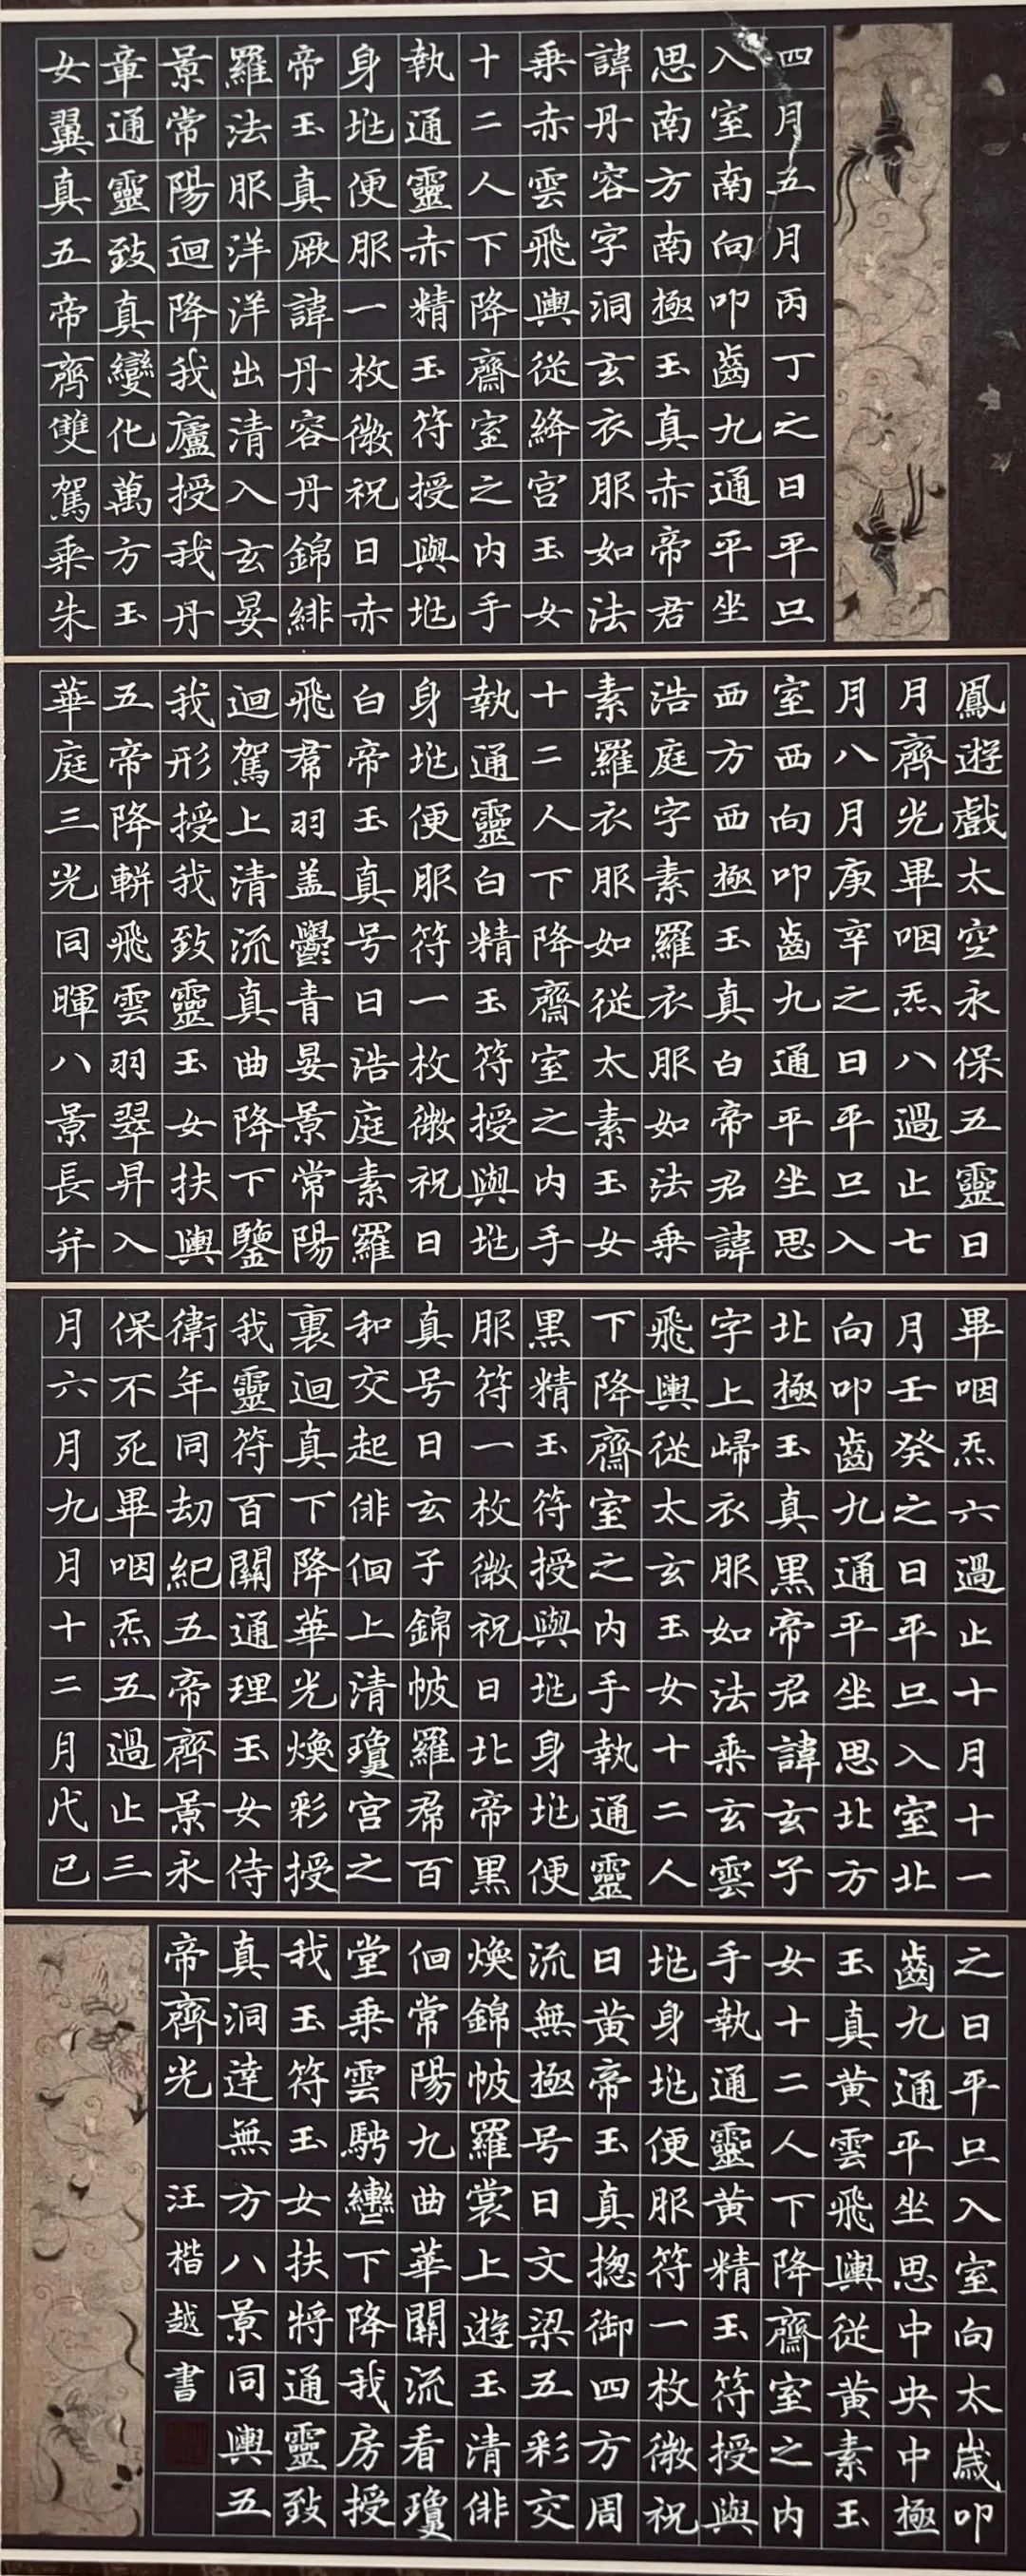 四月五月丙丁之日平旦
入室南向叩齒九通平坐
思南方南極玉真赤帝君
諱丹容字洞玄衣服如法
乘赤雲飛輿從絳宮玉女
十二人下降齋室之内手
執通靈赤精玉符授與垗
身垗便服一枚微祝日赤
帝玉真厥諱丹容丹錦緋
羅法服洋洋出清入玄晏
景常陽迴降我廬授我丹
章通靈致真變化萬方玉
女翼真五帝齊雙駕乘朱
鳳遊戲太空永保五靈日
月齊光畢咽炁八過止七
月八月庚辛之日平旦入
室西向叩齒九通平坐思
西方西極玉真白帝君諱
浩庭字素羅衣服如法乘
素羅衣服如從太素玉女
十二人下降齋室之内手
執通靈白精玉符授與垗
身垗便服符一枚微祝日
白帝玉真号日浩庭素羅
飛帬羽盖鬱青晏景常陽
迴駕上清流真曲降下鑒
我形授我致靈玉女扶輿
五帝降軿飛雲羽翠昇入
華庭三光同暉八景長并
畢咽炁六過止十月十一
月壬癸之日平旦入室北
向叩齒九通平坐思北方
北極玉真黑帝君諱玄子
字上歸衣服如法乘玄雲
飛輿從太玄玉女十二人
下降齋室之内手執通靈
黑精玉符授與垗身垗便
服符一枚微祝日北帝黑
真号日玄子錦帔羅帬百
和交起俳佪上清瓊宮之
裏迴真下降華光煥彩授
我靈符百關通理玉女侍
衛年同劫紀五帝齊景永
保不死畢咽炁五過止三
月六月九月十二月戊己
之日平旦入室向太歲叩
齒九通平坐思中央中極
玉真黃雲飛輿從黃素玉
女十二人下降齋室之内
手執通靈黃精玉符授與
垗身垗便服符一枚微祝
日黃帝玉真揔御四方周
流無極号日文梁五彩交
煥錦帔羅裳上遊玉清俳
佪常陽九曲華關流看瓊
堂乘雲駃轡下降我房授
我玉符玉女扶將通靈致
真洞達無方八景同輿五
帝齊光 汪楷越書